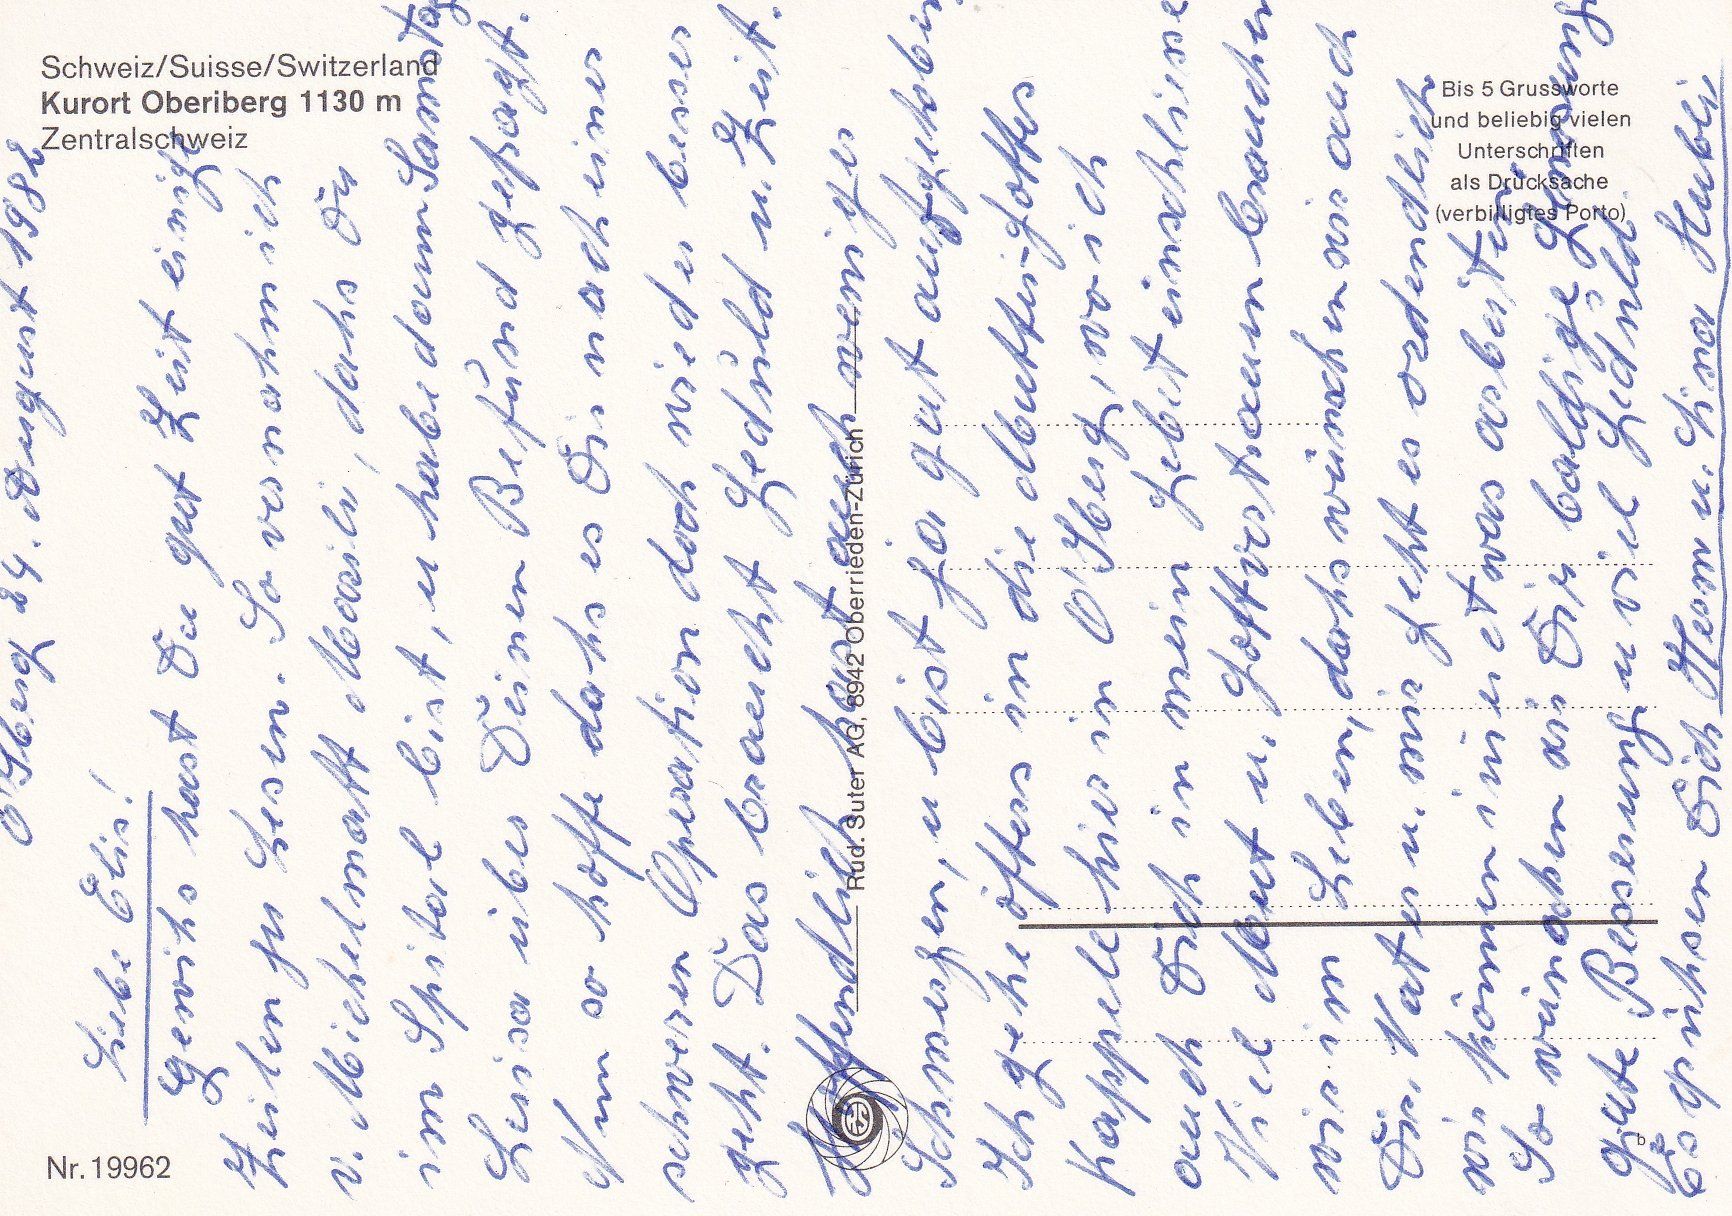 Schweiz/Suisse/Switzerland
Kurort Oberiberg 1130 m
Zentralschweiz
Bis 5 Grussworte
und beliebig vielen
Unterschriften
als Drucksache
(verbilligtes Porto)
Rud. Suter AG, 8942 Oberrieden-Zürich
Nr. 19962
b
O'Iberg 24. August 1982
Liebe Elis!
Gewiss hast Du gut Zeit einige
Zeilen zu Lesen. So vernahm ich
v. Michelmatt Marili, dahs Du
im Spital bist, u habe dann Samstag
Luisa über Deinen Befund gefragt.
Nun so hoffe dahs es Dir nach einer
schweren Operation doch wieder besser
geht. Das braucht Gedùld u. Zeit.
Hoffendlich hast auch weniger
Schmerzen, u bist ja gut aufgehoben
Ich gehe öffters in die Muttergottes
Kappele hier in O'Iberg, wo ich
auch Dich in mein Gebet einschliese
Viel Mut u. Gottvertrauen brauchen
wir im Leben, dahs wünschen wir auch
Dir. Vater u. mir geht es ordendlich
wir können immer etwas arbeiten
So wünschen wir Dir baldige Genesung
gute Besserung u viel Gedùld
Es grüssen Dich Herm u. Lina Hubli